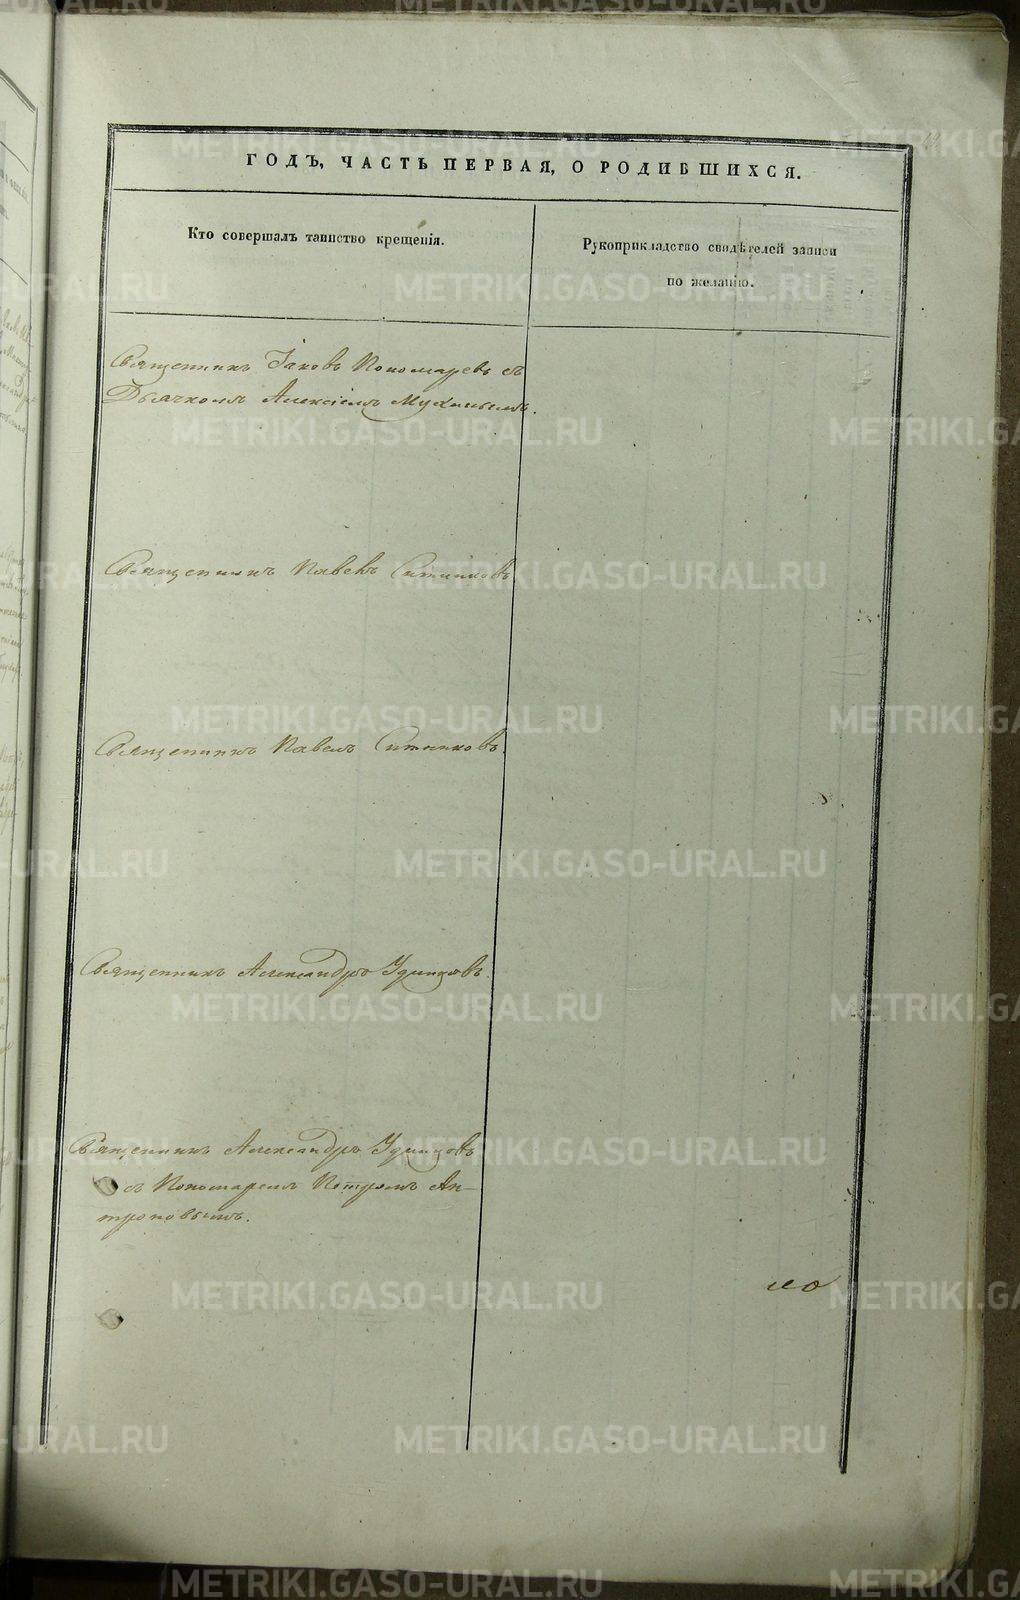 ГОДЪ, ЧАСТЬ ПЕРВАЯ, О РОДИВШИХСЯ.
Кто совершалъ таинство крещенія.
Рукоприкладство свидѣтелей записи
по желанію.
Священникъ Іаковъ Пономаревъ съ
Дьячкомъ Алексіемъ Мухинымъ.
Священникъ Павелъ Ситниковъ
Священникъ Павелъ Ситниковъ.
Священникъ Александръ Удинцовъ.
Священникъ Александръ Удинцовъ
съ Пономаремъ Петромъ Ан-
троповымъ.
METRIKI.GASO-URAL.RU